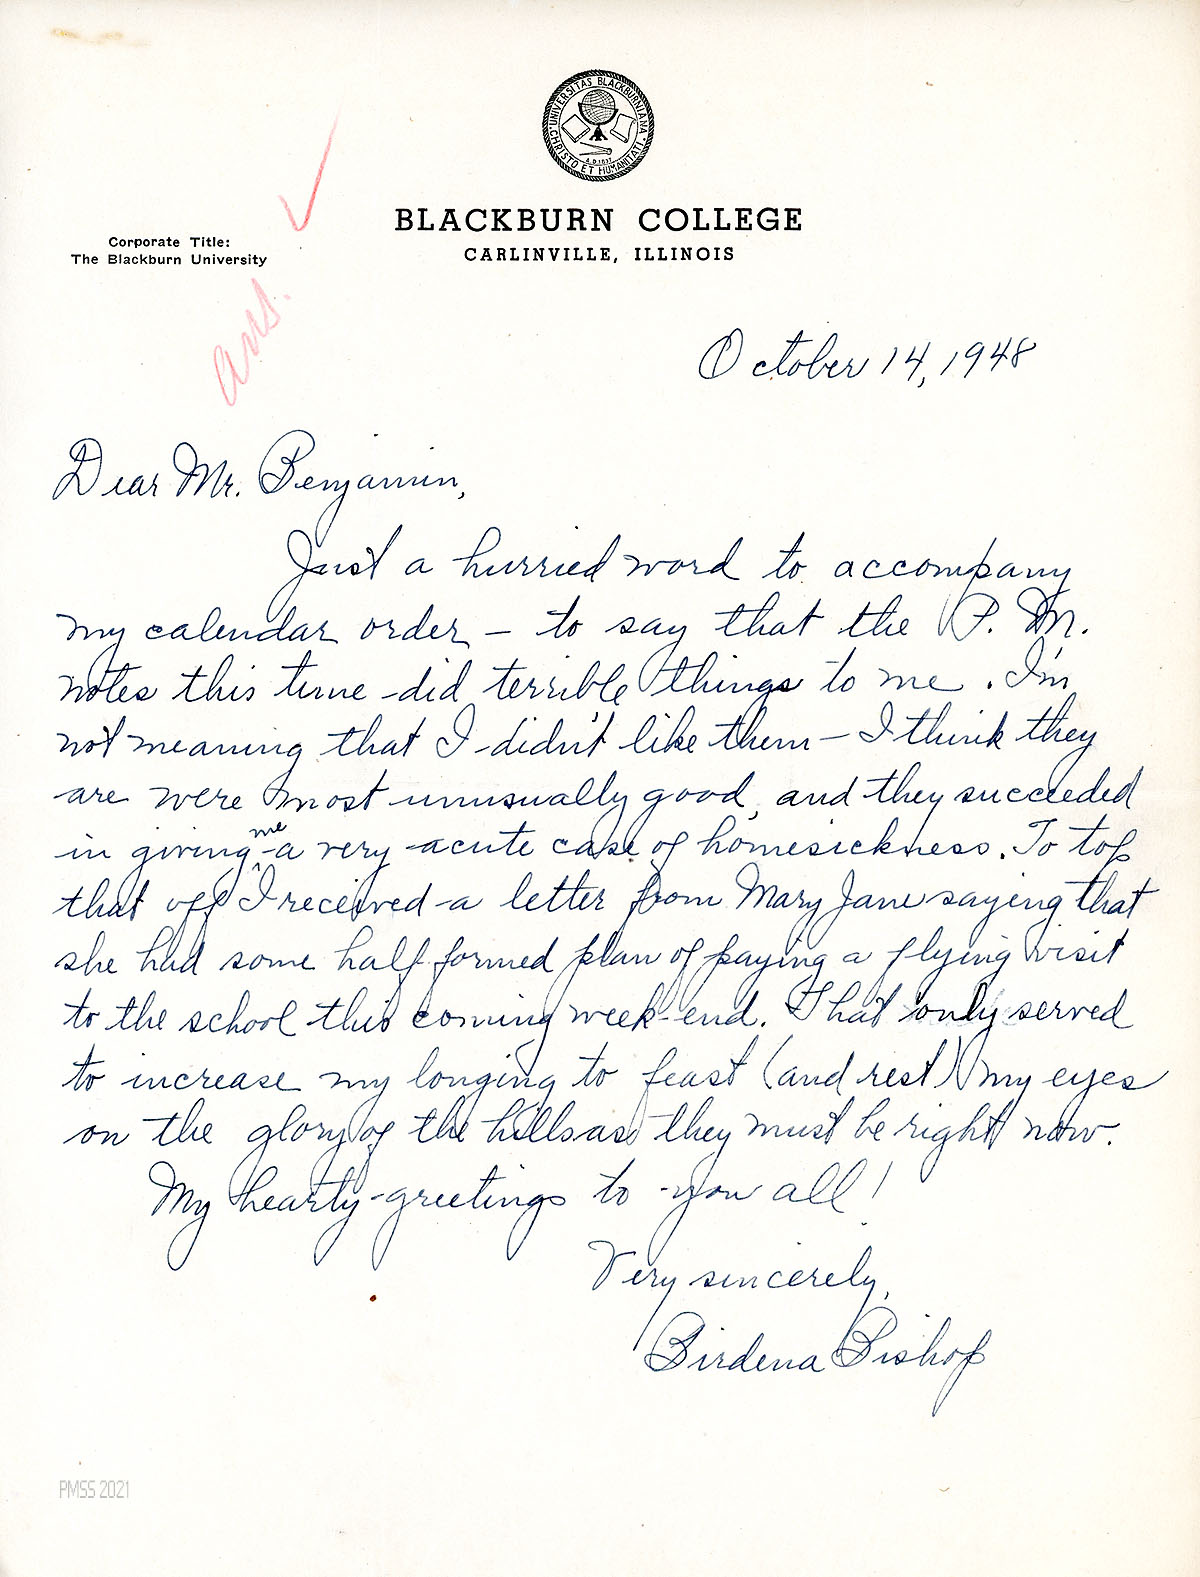 UNIVERSITAS BLACKBURNIANA
CHRISTO ET HUMANITATI
A.D. 1837
BLACKBURN COLLEGE
CARLINVILLE, ILLINOIS
Corporate Title:
The Blackburn University
ans.
October 14, 1948
Dear Mr. Benjamin,
Just a hurried word to accompany
my calendar order – to say that the P. M.
notes this time did terrible things to me. I'm
not meaning that I didn't like them – I think they
are were most unusually good, and they succeeded
in giving me a very acute case of homesickness. To top
that off I received a letter from Mary Jane saying that
she had some half formed plan of paying a flying visit
to the school this coming week-end. That only served
to increase my longing to feast (and rest) my eyes
on the glory of the hills as they must be right now.
My hearty greetings to you all!
Very sincerely,
Birdena Bishop
PMSS 2021